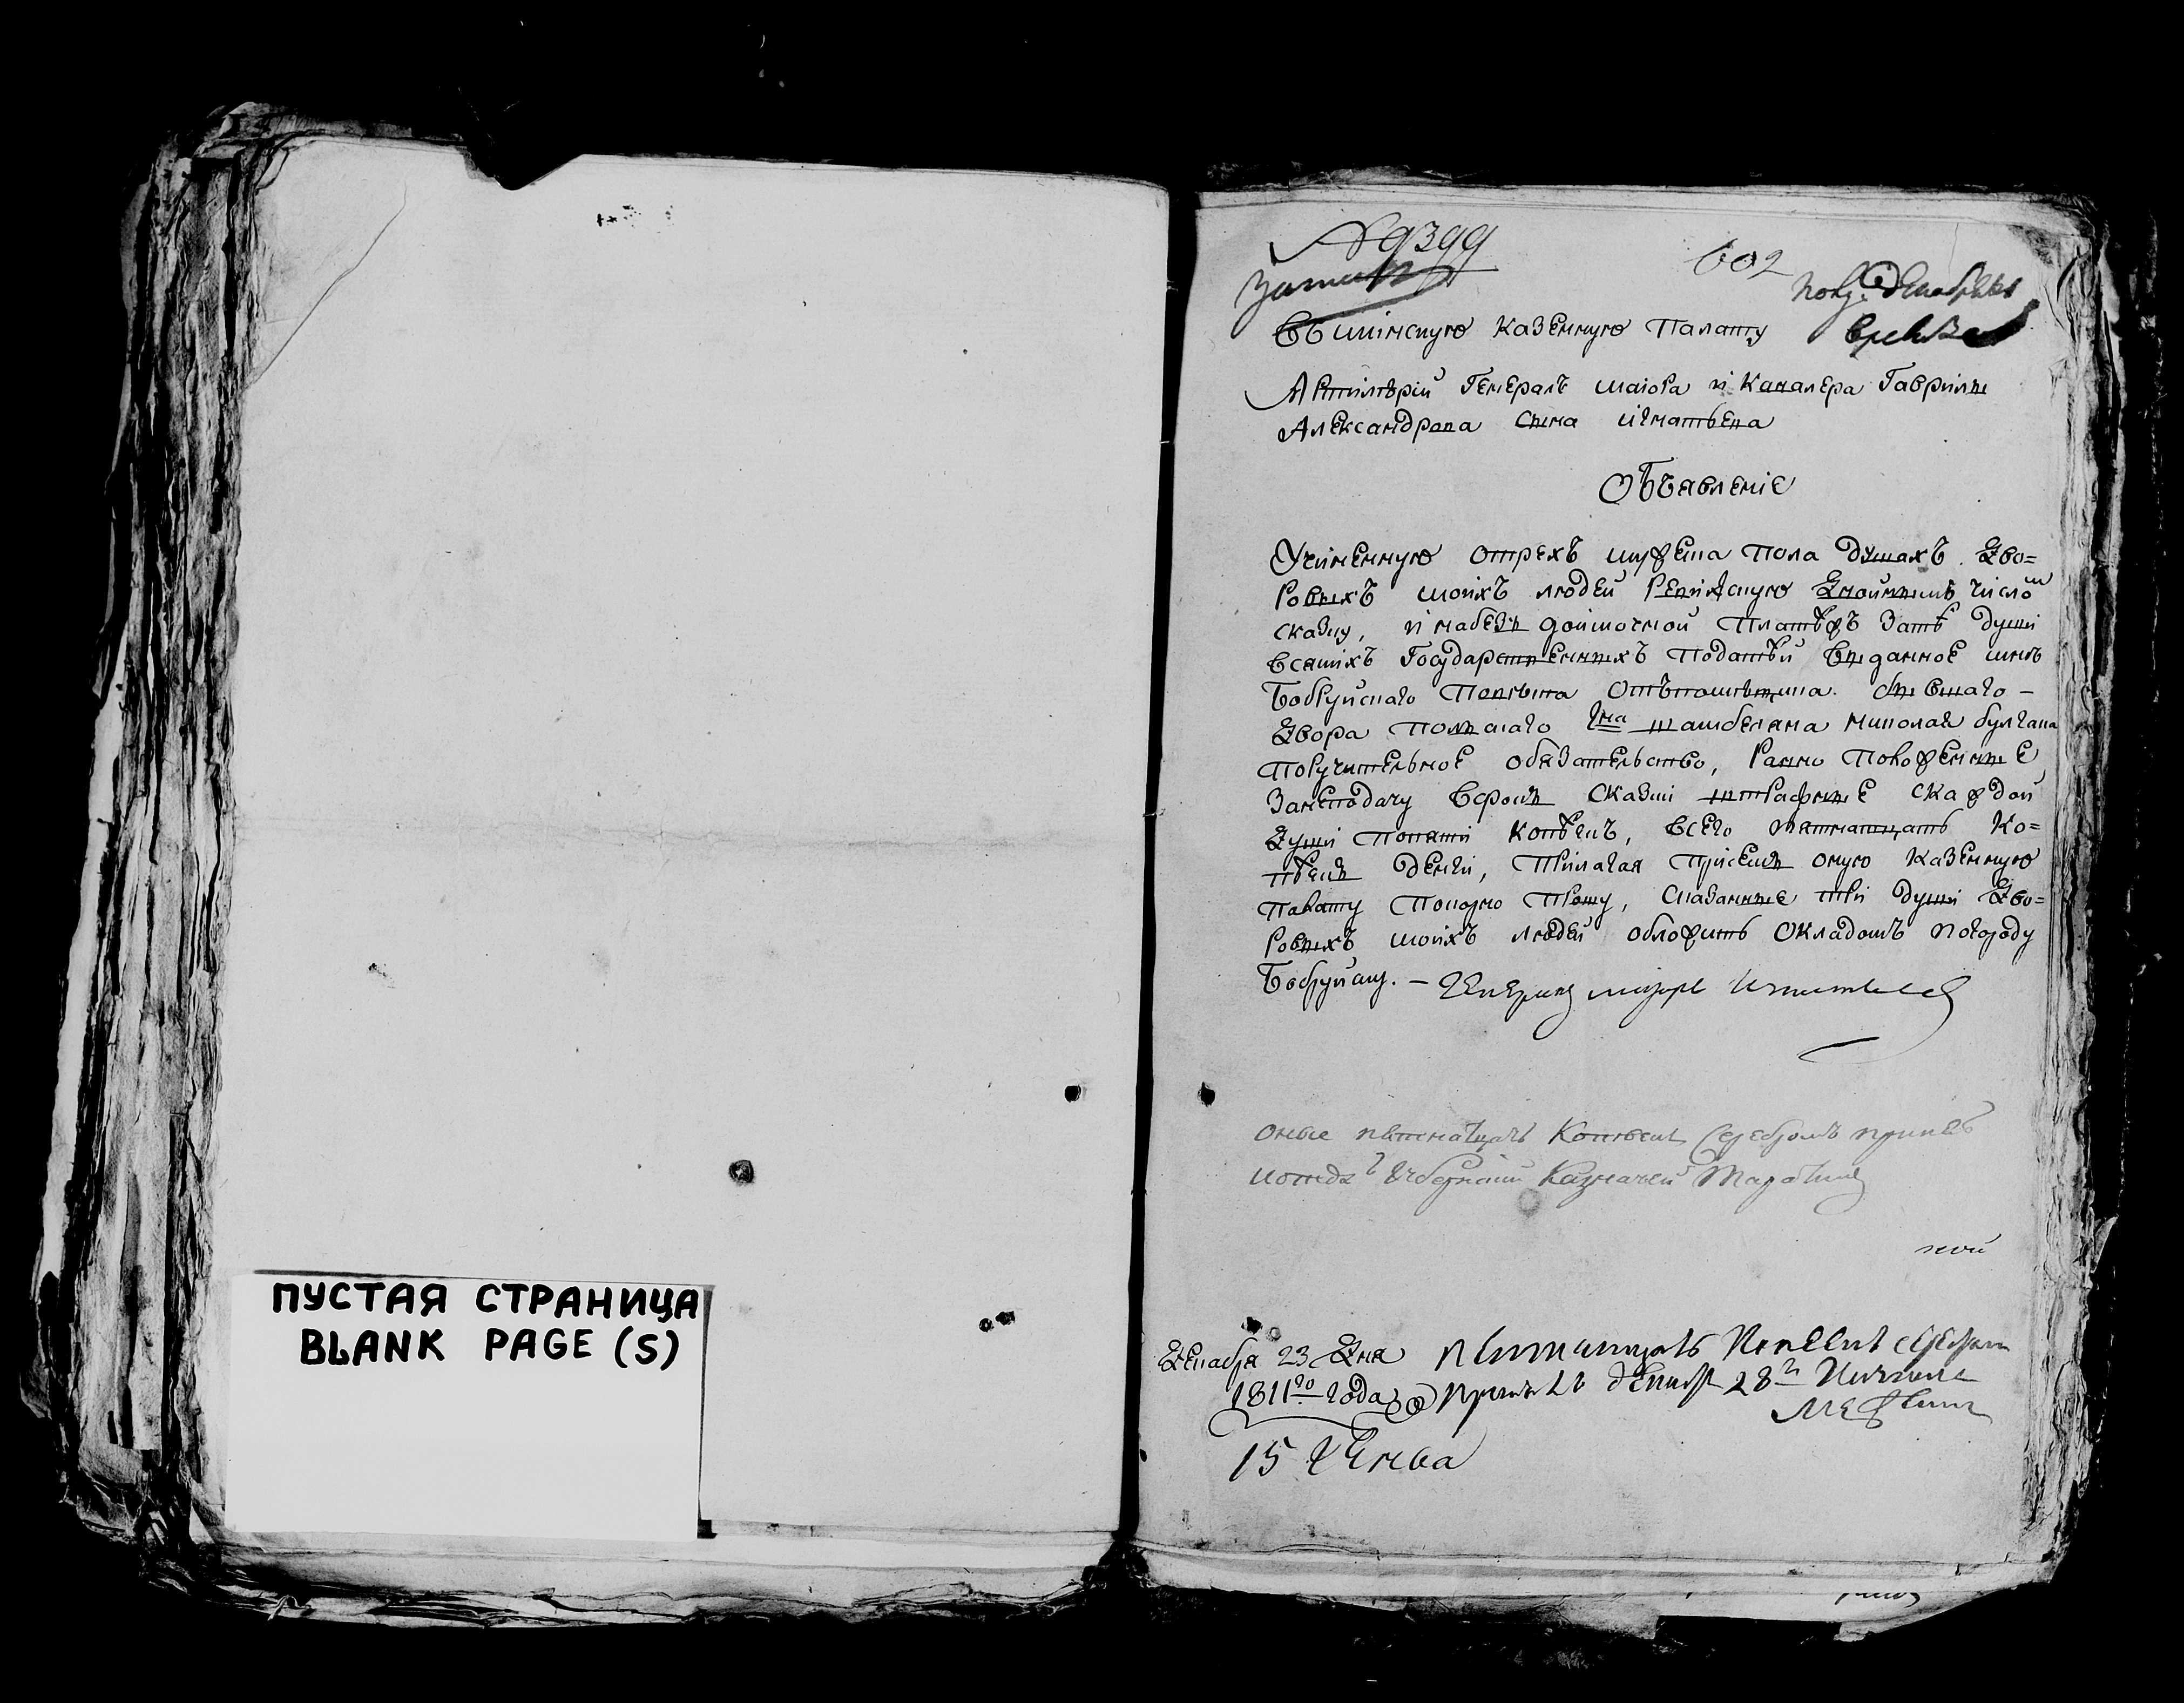 ПУСТАЯ СТРАНИЦА
BLANK PAGE (S)
№ 9399
602
Въ минскую казенную палату
Артилерій Генералъ маіора и Кавалера Гаврилы
Александрова сына игнатьева
Объявленіе
Учиненную отрехъ мужеска пола душахъ дво=
ровыхъ моихъ людей ревижскую
сказку, и набезъ доимочной платежъ затѣ души
всякихъ Государственныхъ податей выданное мнѣ
Бобруйскаго повѣта бывшаго –
двора польскаго шамбеляна николая булгака
поручительное обязательство, равно положенные
занеподачу всрокъ сказки штрафные скаждой
души попяти копѣекъ, всего пятнатцать ко=
пѣекъ денги, прилагая присемъ оную казенную
палату покорно прошу, сказанные три души дво=
ровыхъ моихъ людей обложить окладомъ погороду
Бобруйску. – Генералъ маіоръ Игнатьевъ
оные пятнатцать копѣекъ серебромъ принялъ
Губернскій Казначей
Декабря 23 дня
1811го года
пятнатцать копѣекъ серебром
принялъ декабр 28
15